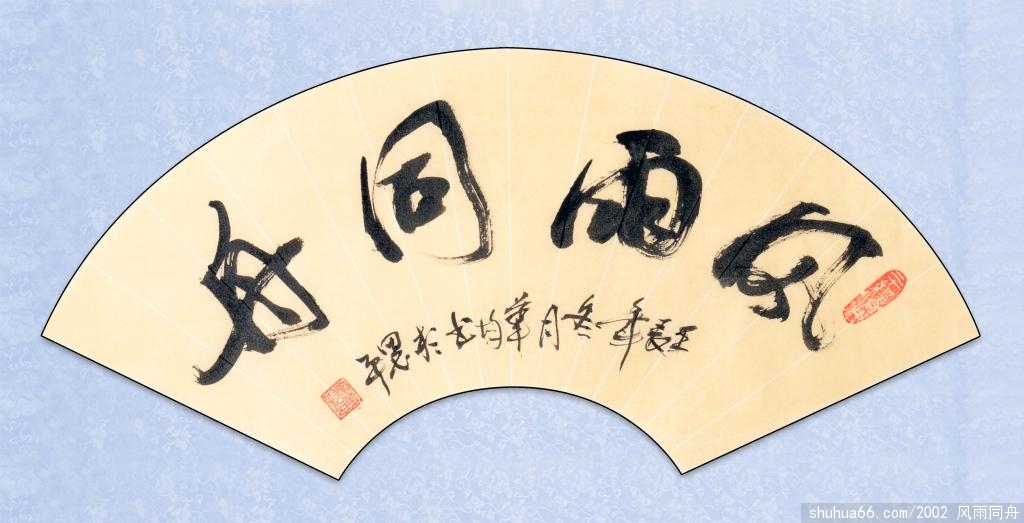 风雨同舟
壬辰年冬月華均书於恩平
shuhua66.com/2002 风雨同舟